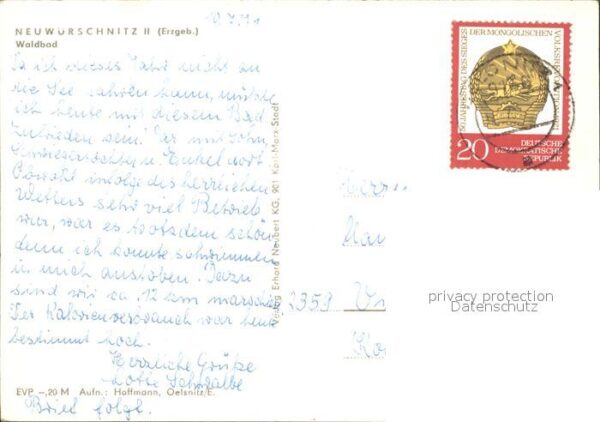 10.7.71
NEUWÜRSCHNITZ II (Erzgeb.)
Waldbad
Da ich dieses Jahr nicht an
die See fahren kann, mußte
ich heute mit diesem Bad
zufrieden sein. War mit Sohn,
Schwiegertochter u. Enkel dort.
Obwohl infolge des herrlichen
Wetters sehr viel Betrieb
war, war es trotzdem schön
denn ich konnte schwimmen
u. mich austoben. Dazu
sind wir ca. 12 km marschiert
Der Kalorienverbrauch war heute
bestimmt hoch.
Herzliche Grüße
Lotte Schwalbe
EVP –,20 M Aufn.: Hoffmann, Oelsnitz/E.
Brief folgt.
Verlag Erhard Neubert KG, 901 Karl-Marx-Stadt
50. JAHRESTAG DES SIEGES DER MONGOLISCHEN VOLKSREVOLUTION 1971
20 DEUTSCHE
DEMOKRATISCHE
REPUBLIK
Herr
2359
privacy protection
Datenschutz